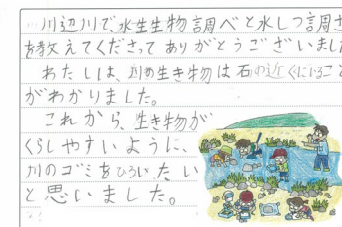 川辺川で、水生生物調べと水しつ調さ
を教えてくださってありがとうございまし
わたしは、川の生き物は石の近くにいるこ
がわかりました。
これから、生き物が
くらしやすいように、
川のゴミをひろいたい
と思いました。